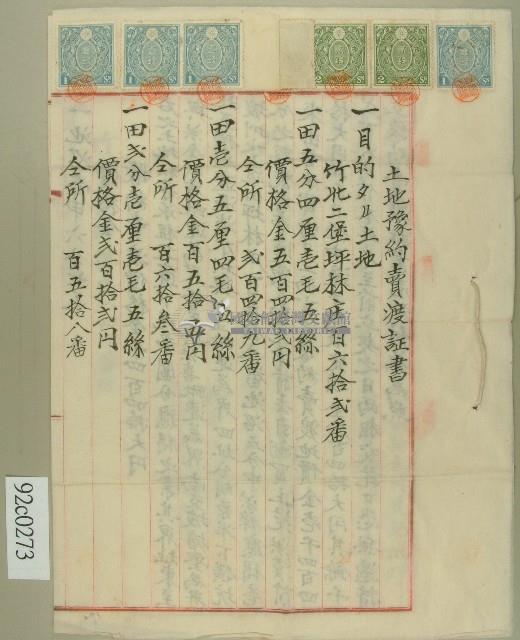 土地豫約賣渡証書
一目的タル土地
竹北二堡坪林庄 百六拾弍番
一田五分四厘壱毛五絲
價格金五百四拾弍円
仝所 弍百四拾九番
一田壱分五厘四毛 絲
價格金百五拾 円
仝所 百六拾叁番
一田弍分壱厘壱毛五絲
價格金弍百拾弍円
仝所 百五拾八番
92c0273